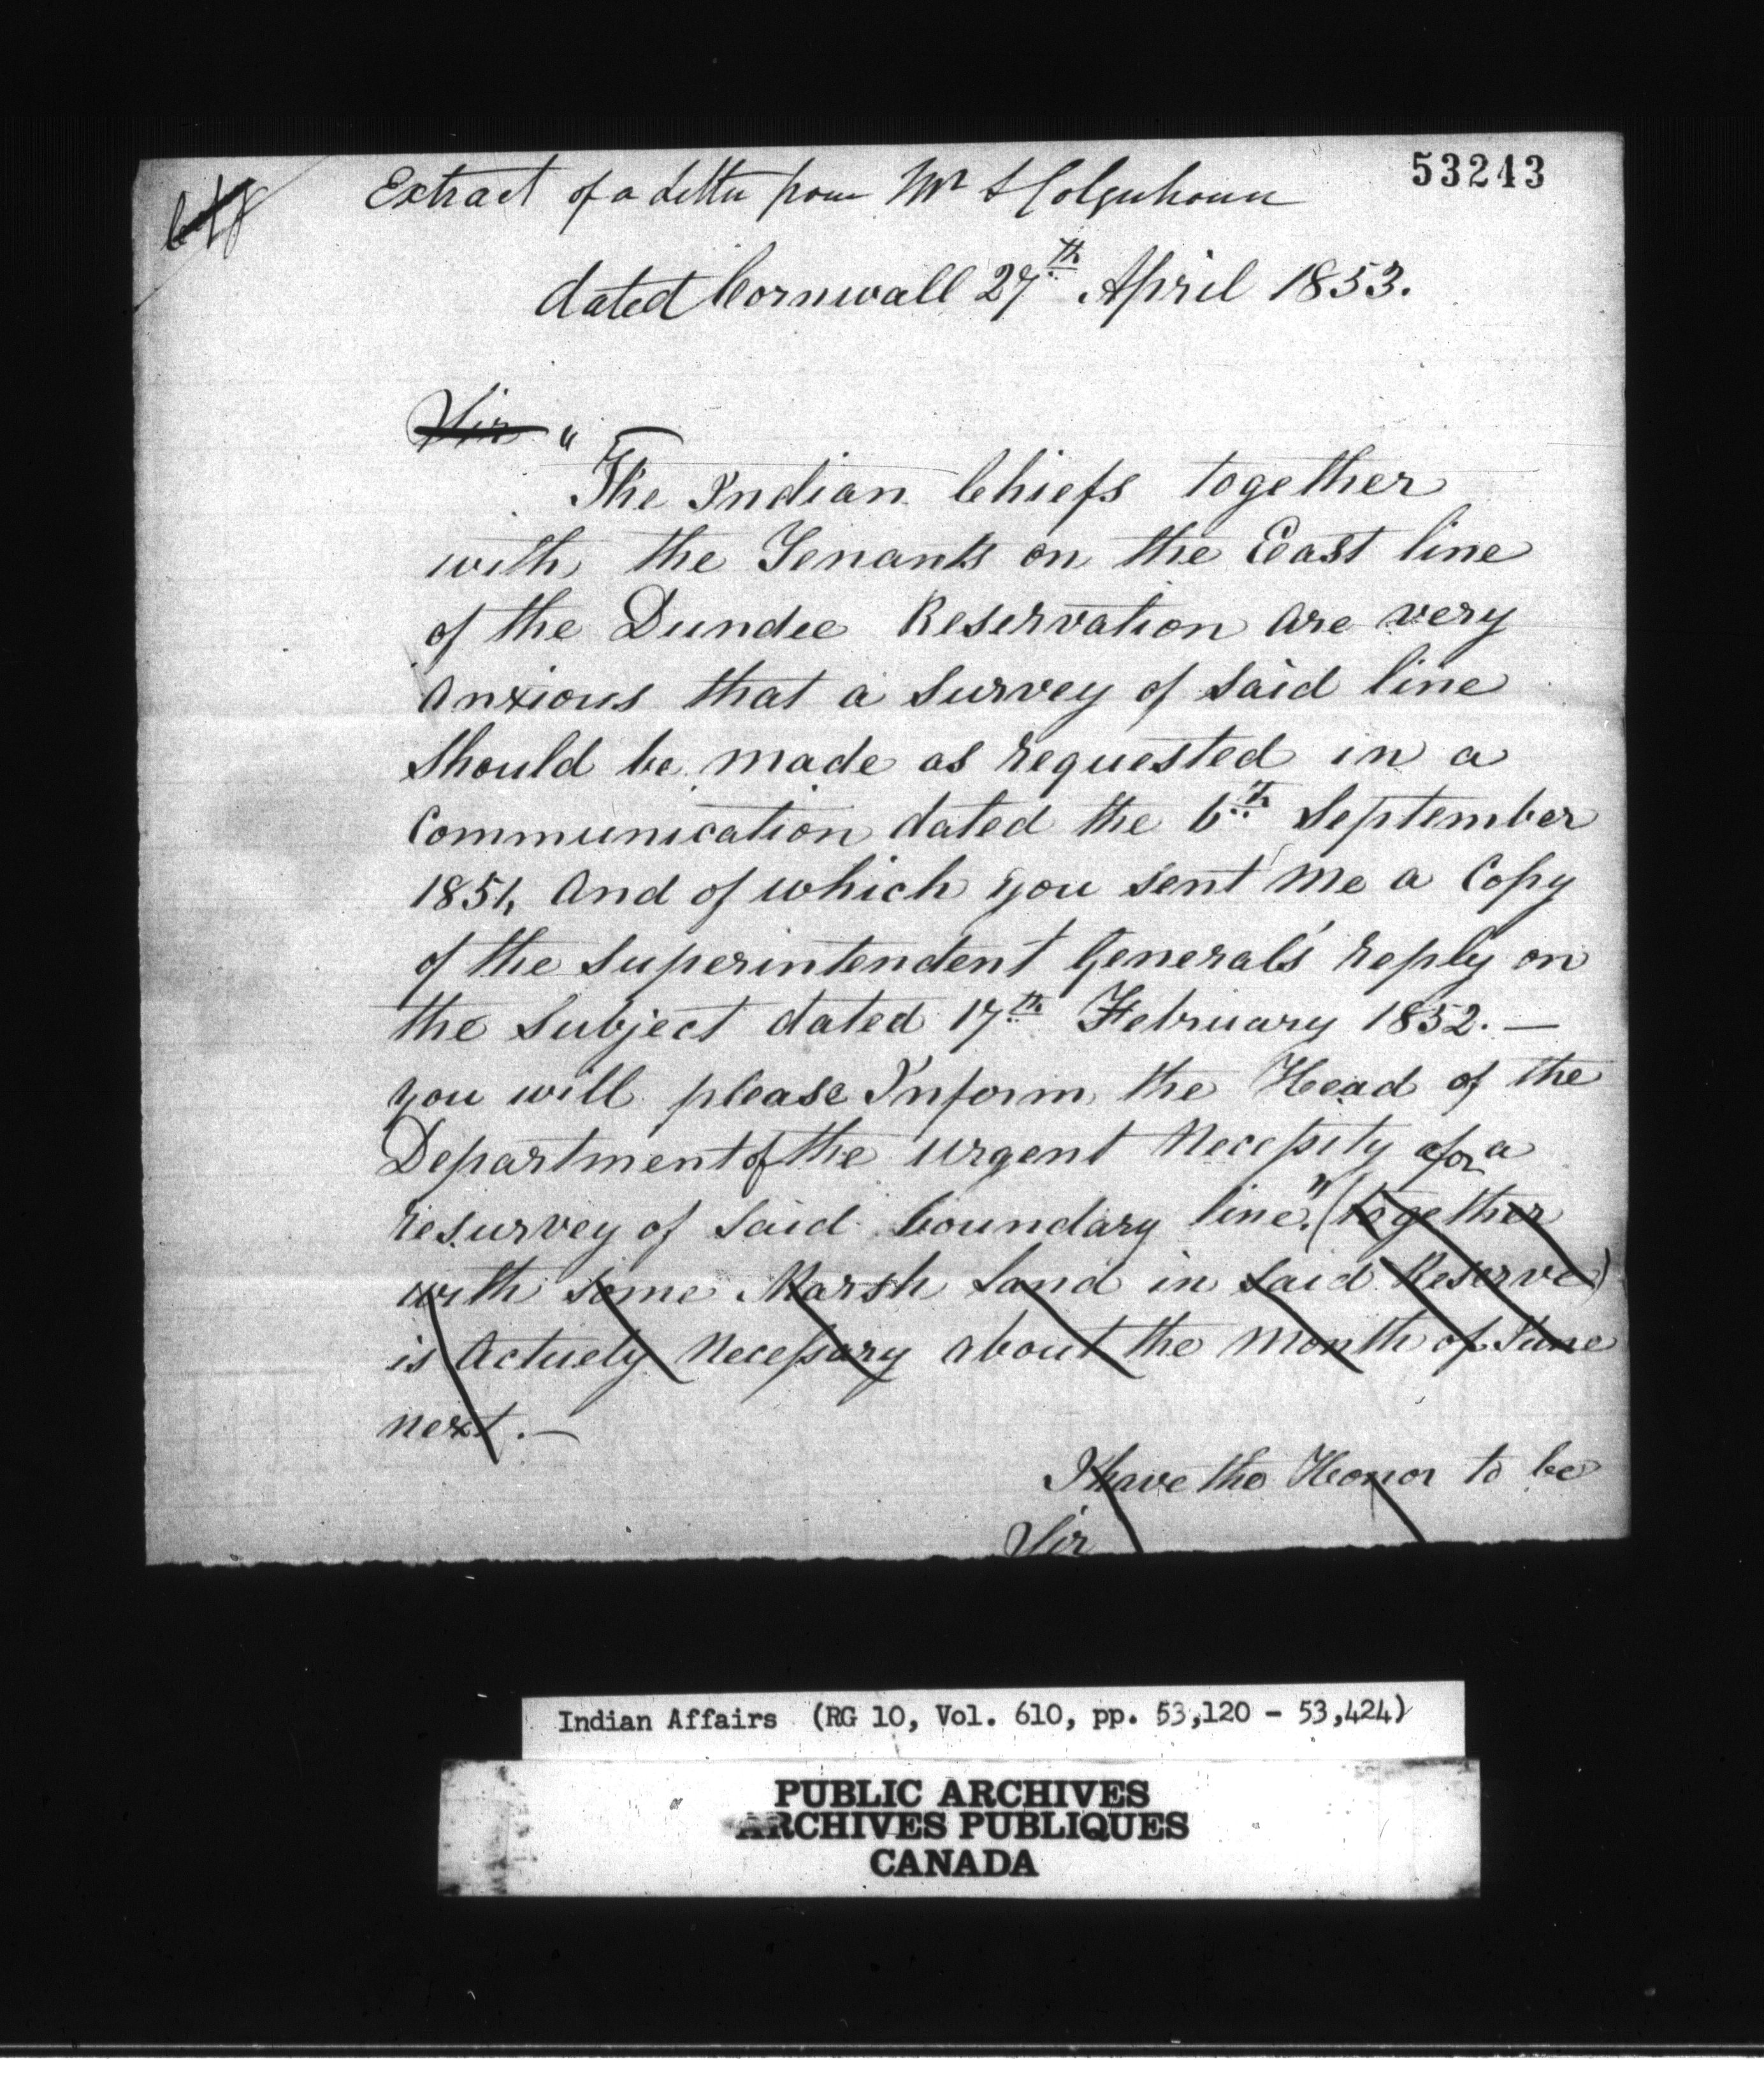 53243
Extract of a Letter from Mr S Colquhoun
dated Cornwall 27th April 1853.
Sir "
The Indian Chiefs together
with the Tenants on the East line
of the Dundee Reservation are very
anxious that a Survey of Said line
Should be made as requested in a
Communication dated the 6th September
1851, and of which you sent me a Copy
of the Superintendent General's reply on
the Subject dated 17th February 1852. —
you will please Inform the Head of the
Department of the urgent Necessity for a
resurvey of Said boundary line." (together
with some Marsh Land in Said Reserve)
is Actuely Necessary about the Month of June
next. —
I have the Honor to be
Sir
Indian Affairs (RG 10, Vol. 610, pp. 53,120 - 53,424)
PUBLIC ARCHIVES
ARCHIVES PUBLIQUES
CANADA